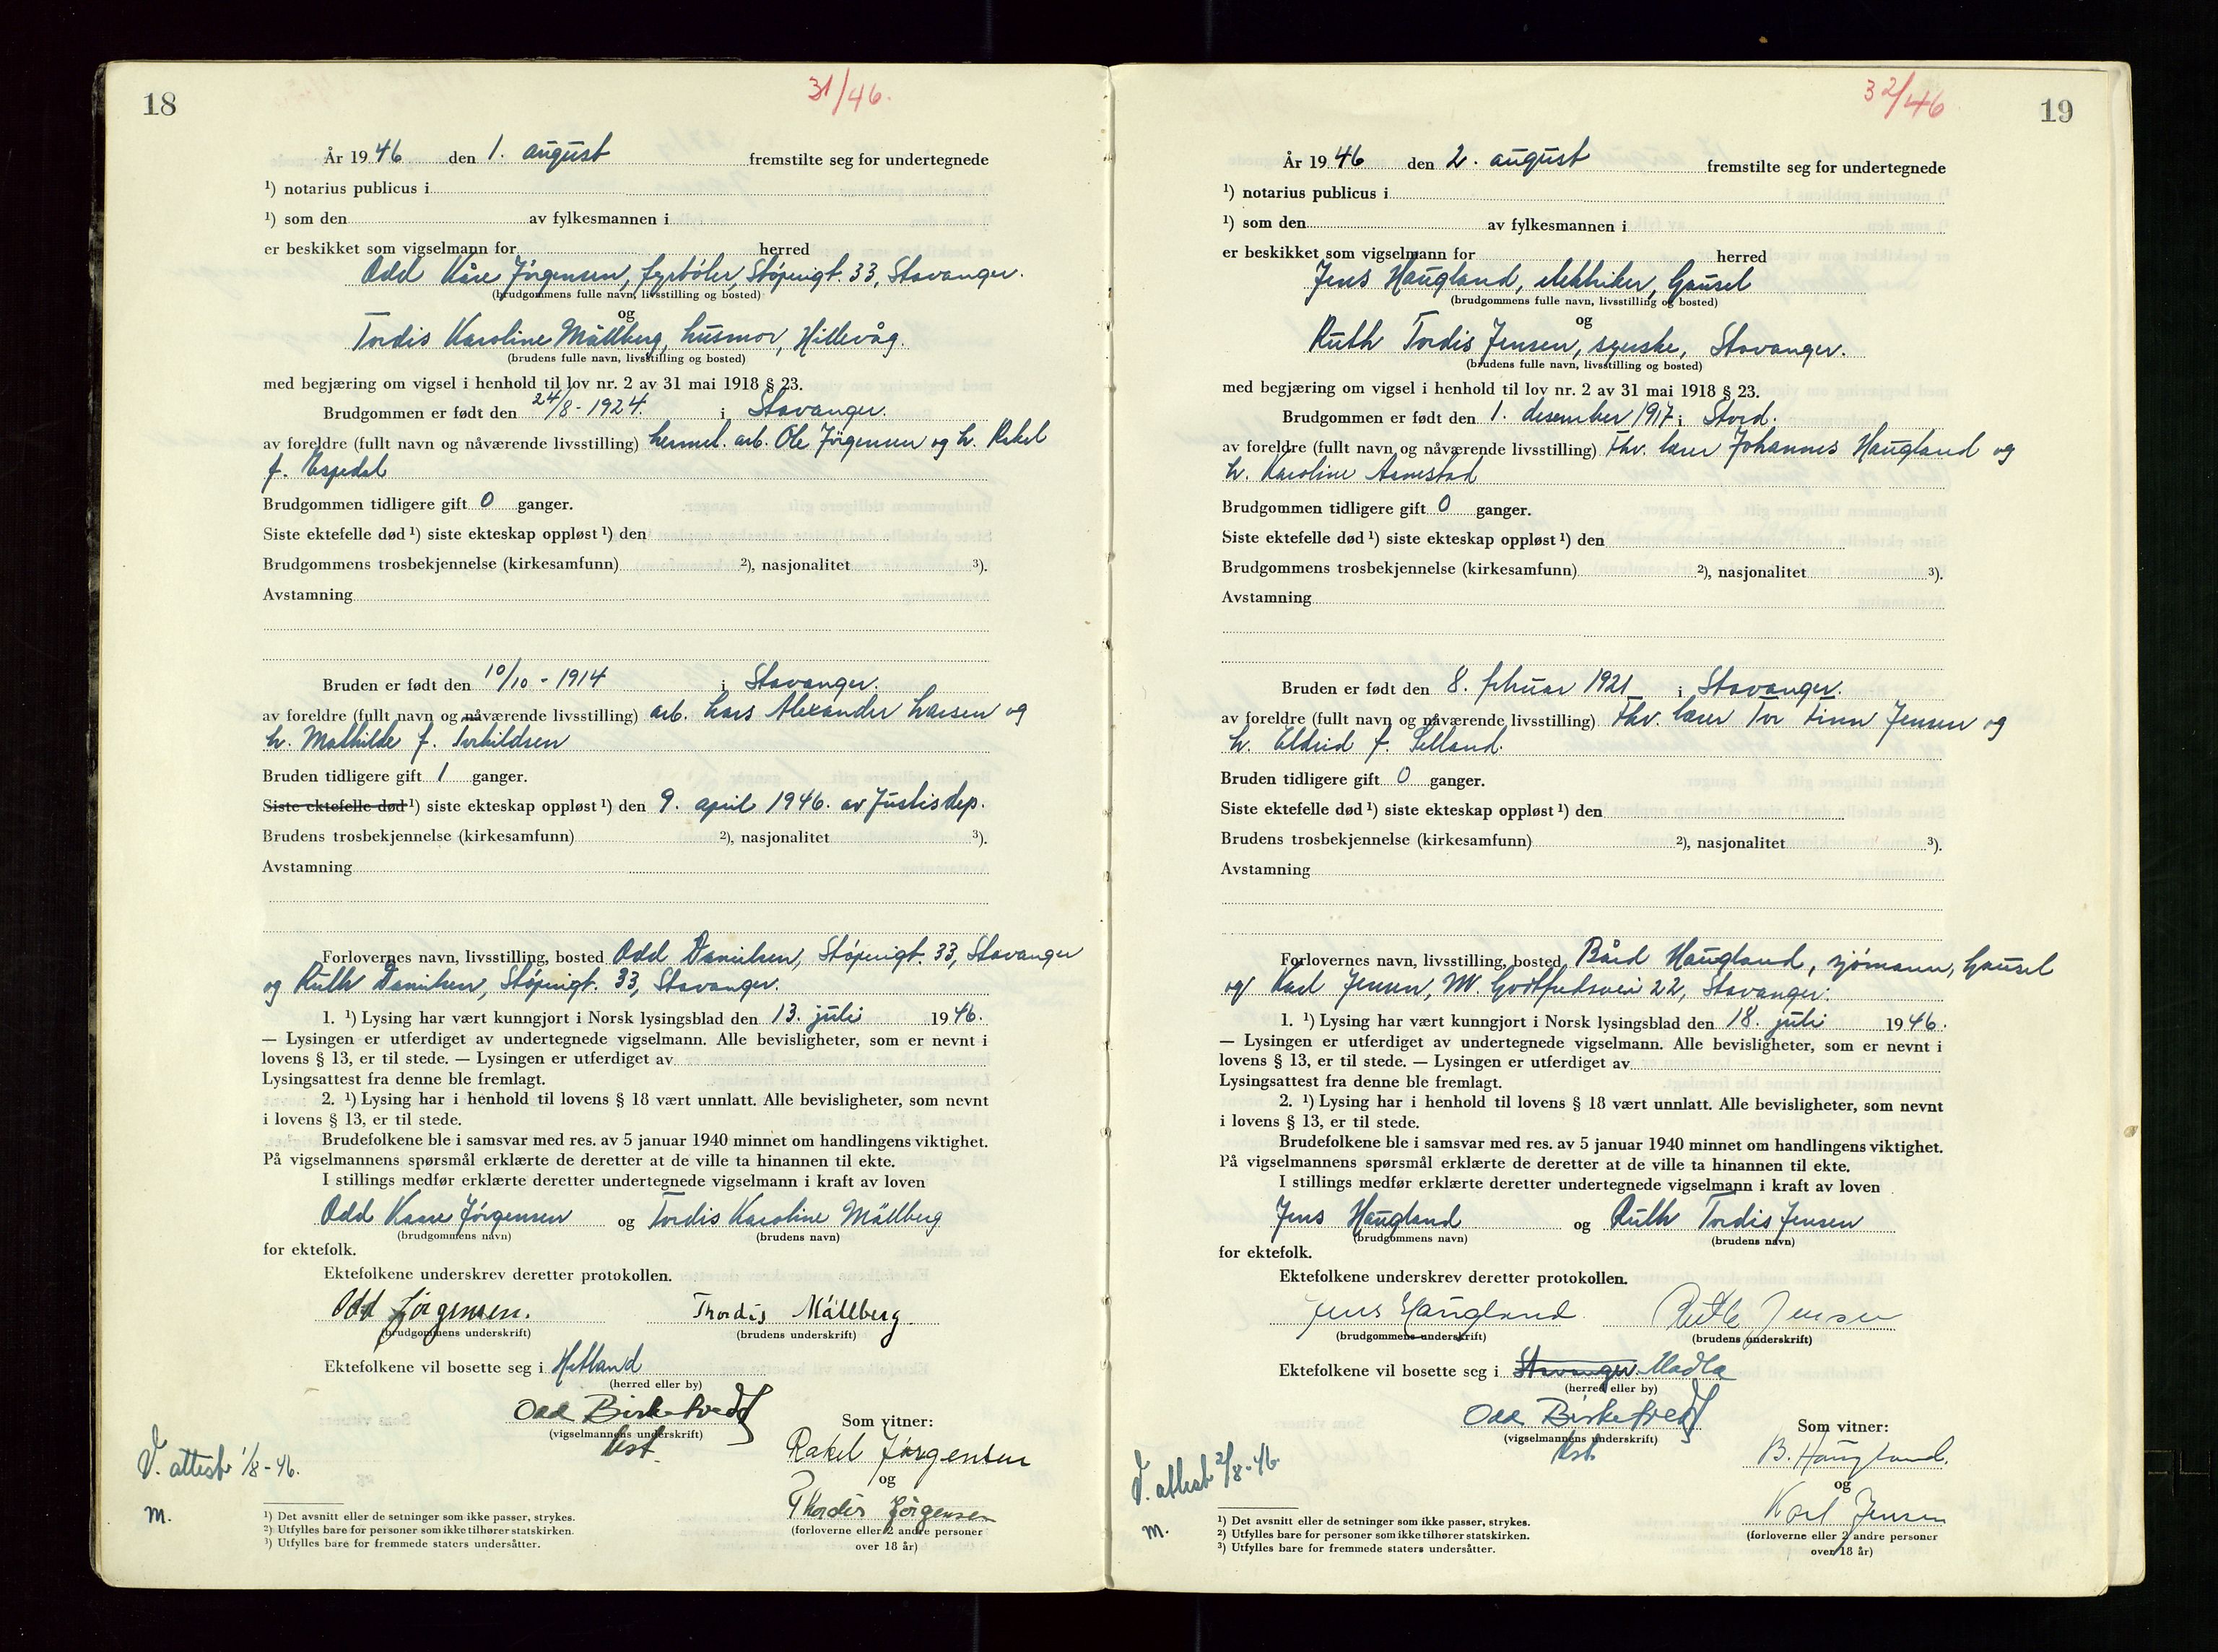 18
31/46.
År 1946 den 1. august fremstilte seg for undertegnede
¹) notarius publicus i
¹) som den av fylkesmannen i
er beskikket som vigselmann for herred
Odd Kåre Jörgensen, fyrböter, Støperigt. 33, Stavanger.
(brudgommens fulle navn, livsstilling og bosted)
og
Tordis Karoline Mållberg, husmor, Hillevåg.
(brudens fulle navn, livsstilling og bosted)
med begjæring om vigsel i henhold til lov nr. 2 av 31 mai 1918 § 23.
Brudgommen er født den 24/8-1924. i Stavanger.
av foreldre (fullt navn og nåværende livsstilling) hermet. arb. Ole Jörgensen og h. Rakel
f. Espedal
Brudgommen tidligere gift 0 ganger.
Siste ektefelle død ¹) siste ekteskap oppløst ¹) den
Brudgommens trosbekjennelse (kirkesamfunn) ²), nasjonalitet ³).
Avstamning
Bruden er født den 10/10 - 1914 i Stavanger.
av foreldre (fullt navn og nåværende livsstilling) arb. Lars Alexander Larsen og
h. Mathilde f. Torkildsen
Bruden tidligere gift 1 ganger.
Siste ektefelle død ¹) siste ekteskap oppløst ¹) den 9. april 1946. av Justisdep.
Brudens trosbekjennelse (kirkesamfunn) ²), nasjonalitet ³).
Avstamning
Forlovernes navn, livsstilling, bosted Odd Danielsen, Støperigt. 33, Stavanger
og Ruth Danielsen, Støperigt. 33, Stavanger.
1. ¹) Lysing har vært kunngjort i Norsk lysingsblad den 13. juli 1946.
— Lysingen er utferdiget av undertegnede vigselmann. Alle bevisligheter, som er nevnt i
lovens § 13, er til stede. — Lysingen er utferdiget av
Lysingsattest fra denne ble fremlagt.
2. ¹) Lysing har i henhold til lovens § 18 vært unnlatt. Alle bevisligheter, som nevnt
i lovens § 13, er til stede.
Brudefolkene ble i samsvar med res. av 5 januar 1940 minnet om handlingens viktighet.
På vigselmannens spørsmål erklærte de deretter at de ville ta hinannen til ekte.
I stillings medfør erklærte deretter undertegnede vigselmann i kraft av loven
Odd Kaare Jörgensen og Tordis Karoline Mållberg
(brudgommens navn) (brudens navn)
for ektefolk.
Ektefolkene underskrev deretter protokollen.
Odd Jörgensen. Thordis Mållberg
(brudgommens underskrift) (brudens underskrift)
Ektefolkene vil bosette seg i Hetland
(herred eller by)
Odd Birketvedt
(vigselmannens underskrift)
kst.
Som vitner:
Rakel Jörgensen
og
Thordis Jörgensen
(forloverne eller 2 andre personer
over 18 år)
V. attest 1/8-46.
M.
¹) Det avsnitt eller de setninger som ikke passer, strykes.
²) Utfylles bare for personer som ikke tilhører statskirken.
³) Utfylles bare for fremmede staters undersåtter.
32/46
19
År 1946 den 2. august fremstilte seg for undertegnede
¹) notarius publicus i
¹) som den av fylkesmannen i
er beskikket som vigselmann for herred
Jens Haugland, elektriker, Gausel
(brudgommens fulle navn, livsstilling og bosted)
og
Ruth Tordis Jensen, syerske, Stavanger.
(brudens fulle navn, livsstilling og bosted)
med begjæring om vigsel i henhold til lov nr. 2 av 31 mai 1918 § 23.
Brudgommen er født den 1. desember 1917 i Stord.
av foreldre (fullt navn og nåværende livsstilling) Fhv. lærer Johannes Haugland og
h. Karoline Aamestad
Brudgommen tidligere gift 0 ganger.
Siste ektefelle død ¹) siste ekteskap oppløst ¹) den
Brudgommens trosbekjennelse (kirkesamfunn) ²), nasjonalitet ³).
Avstamning
Bruden er født den 8. februar 1921 i Stavanger.
av foreldre (fullt navn og nåværende livsstilling) Fhv. lærer Tor Finn Jensen og
h. Eldrid f. Selland.
Bruden tidligere gift 0 ganger.
Siste ektefelle død ¹) siste ekteskap oppløst ¹) den
Brudens trosbekjennelse (kirkesamfunn) ²), nasjonalitet ³).
Avstamning
Forlovernes navn, livsstilling, bosted Bård Haugland, sjømann, Gausel
og Karl Jensen, M. Godtfredsvei 22, Stavanger.
1. ¹) Lysing har vært kunngjort i Norsk lysingsblad den 18. juli 1946.
— Lysingen er utferdiget av undertegnede vigselmann. Alle bevisligheter, som er nevnt i
lovens § 13, er til stede. — Lysingen er utferdiget av
Lysingsattest fra denne ble fremlagt.
2. ¹) Lysing har i henhold til lovens § 18 vært unnlatt. Alle bevisligheter, som nevnt
i lovens § 13, er til stede.
Brudefolkene ble i samsvar med res. av 5 januar 1940 minnet om handlingens viktighet.
På vigselmannens spørsmål erklærte de deretter at de ville ta hinannen til ekte.
I stillings medfør erklærte deretter undertegnede vigselmann i kraft av loven
Jens Haugland og Ruth Tordis Jensen
(brudgommens navn) (brudens navn)
for ektefolk.
Ektefolkene underskrev deretter protokollen.
Jens Haugland Ruth Jensen
(brudgommens underskrift) (brudens underskrift)
Ektefolkene vil bosette seg i Stavanger Madla
(herred eller by)
Odd Birketvedt
(vigselmannens underskrift)
kst.
Som vitner:
B. Haugland.
og
Karl Jensen
(forloverne eller 2 andre personer
over 18 år)
V. attest 2/8-46.
M.
¹) Det avsnitt eller de setninger som ikke passer, strykes.
²) Utfylles bare for personer som ikke tilhører statskirken.
³) Utfylles bare for fremmede staters undersåtter.